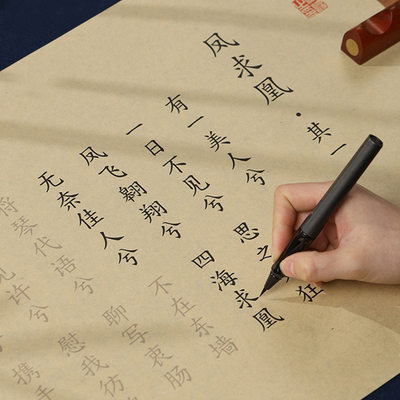 凤求凰·其一
有一美人兮
一日不见兮 思之狂
凤飞翱翔兮 四海求凰
无奈佳人兮 不在东墙
将琴代语兮 聊写衷肠
见许兮 慰我彷
携手